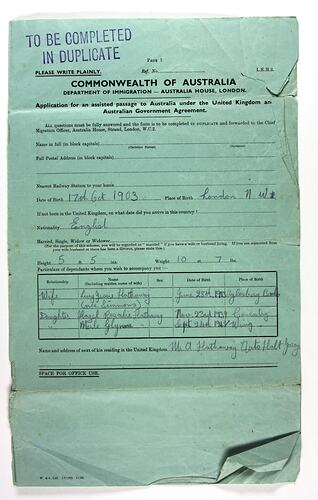 TO BE COMPLETED
IN DUPLICATE
PAGE 1
PLEASE WRITE PLAINLY. Ref. No.
COMMONWEALTH OF AUSTRALIA
DEPARTMENT OF IMMIGRATION — AUSTRALIA HOUSE, LONDON.
Application for an assisted passage to Australia under the United Kingdom an
Australian Government Agreement.
ALL questions must be fully answered and the form is to be completed IN DUPLICATE and forwarded to the Chief
Migration Officer, Australia House, Strand, London, W.C.2.
Name in full (in block capitals)
(Christian Names) (Surname)
Full Postal Address (in block capitals)
Nearest Railway Station to your home
Date of Birth 17th Oct 1903 Place of Birth London N.W.
If not born in the United Kingdom, on what date did you arrive in this country?
Nationality English
Married, Single, Widow or Widower
Height 5 ft 5 ins. Weight 10 st 7 lbs.
Particulars of dependants whom you wish to accompany you :—
Relationship Name Sex Date of Birth Place of Birth
(Including maiden name of wife)
Wife Hathaway June 23rd
Daughter Hazel Rosalie Hathaway Nov. 23rd 1939
Merle Glynne Sept 23rd Wing
Name and address of next of kin residing in the United Kingdom Mr A Hathaway
SPACE FOR OFFICE USE.